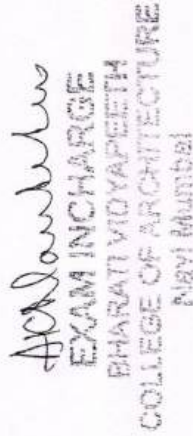 EXAM INCHARGE
BHARATI VIDYAPEETH
COLLEGE OF ARCHITECTURE
Navi Mumbai